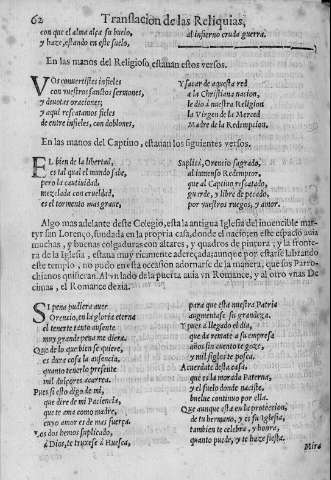 62 Translacion de las Reliquias,
con que el alma alça su buelo,
y haze, estando en este suelo,
al infierno cruda guerra.
En las manos del Religioso, estauan estos versos.
VOs conuertistes infieles
con vuestros santos sermones,
y deuotas oraciones;
y aqui rescatamos fieles
de entre infieles, con doblones,
Y sacar de aquesta red
a la Christiana nacion,
le dio à nuestra Religion
la Virgen de la Merced
Madre de la Redempcion.
En las manos del Captiuo, estauan los siguientes versos.
EL bien de la libertad,
es tal qual el mundo sabe,
pero la cautiuidad
mezclada con crueldad,
es el tormento mas graue,
Suplicà, Orencio sagrado,
al inmenso Redemptor,
que al Captiuo rescatado,
guarde, y libre de pecado,
por vuestros ruegos, y amor.
Algo mas adelante deste Colegio, està la antigua Iglesia del inuencible mar-
tyr san Lorenço, fundada en la propria casa, donde el nacio; en este espacio auia
muchas, y buenas colgaduras con altares, y quadros de pintura; y la fronte-
ra de la Iglesia, estaua muy ricamente adereçada; aunque por estarse labrando
este templo, no pudo en esta ocasion adornarse de la manera, que sus Parro-
chianos quisieran. A vn lado de la puerta auia vn Romance, y al otro vnas De
cimas, el Romance dezia.
SI pena pudiera auer
Orencio, en la gloria eterna
el tenerte tanto ausente
muy grande pena me diera
Que de lo que bien se quiere,
es dura cosa la ausencia,
quanto tenerlo presente
mil dulçores acarrea.
Pues si esto digo de mi,
que dire de mi Paciencia,
que te ama como madre,
cuyo amor es de mas fuerça.
Los dos hemos suplicado,
à Dios, te truxesse à Huesca,
para que esta nuestra Patria
augmentasse su grandeza.
Y pues à llegado el dia,
que da remate a su empresa
años sin cuento te goze,
y mil siglos te posea.
Acuerdate desta casa,
que es la morada Paterna,
y el suelo donde naciste,
buelue continuo por ella.
Que aunque esta en la proteccion,
de tu hermano, y es su Iglesia,
tambien te celebra, y honra,
quanto puede, y te haze fiesta.
Mira